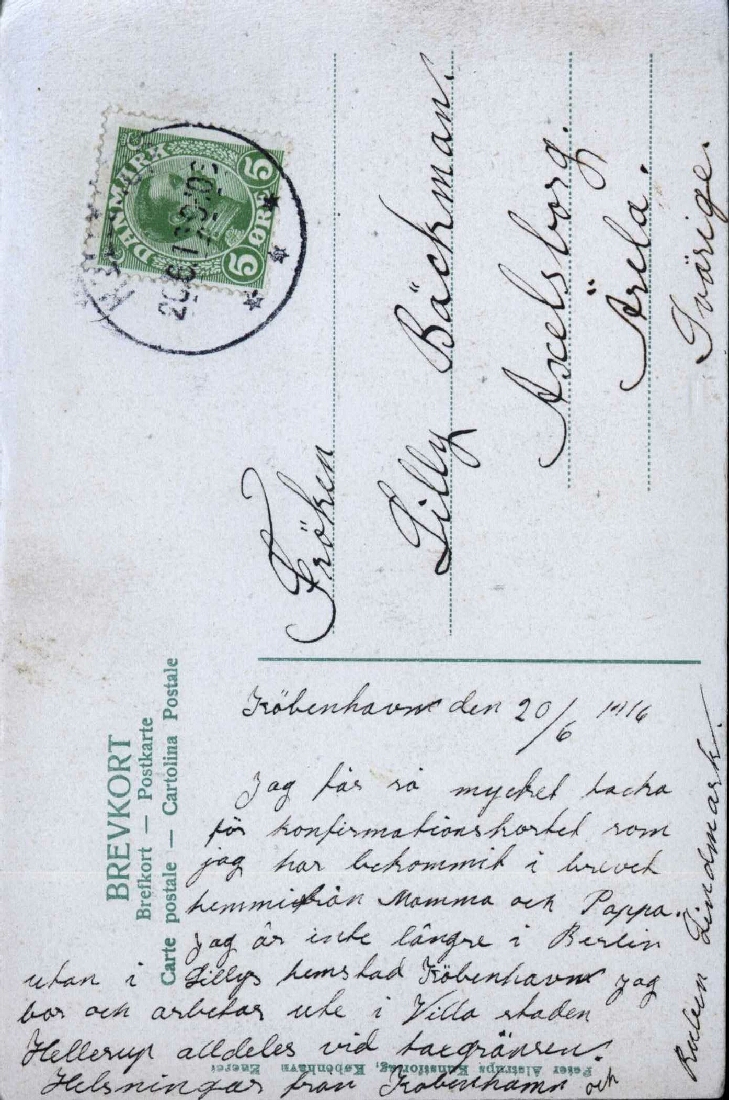 BREVKORT
Brefkort — Postkarte
Carte postale — Cartolina Postale
DANMARK
5 ØRE 5
Fröken
Lilly Bäckman.
Axelsborg.
Ärila.
Svärige.
Köbenhavn den 20/6 1916
Jag får så mycket tacka
för konfirmationskortet som
jag har bekommit i brevet
hemmifrån Mamma och Pappa.
Jag är inte längre i Berlin
utan i Lillys hemstad Köbenhavn jag
bor och arbetar ute i Villa staden
Hellerup alldeles vid taxgränsen.
Helsningar från Köbenhamn och
Lindmark.
Peter Alstrups Kunstforlag, København Eneret